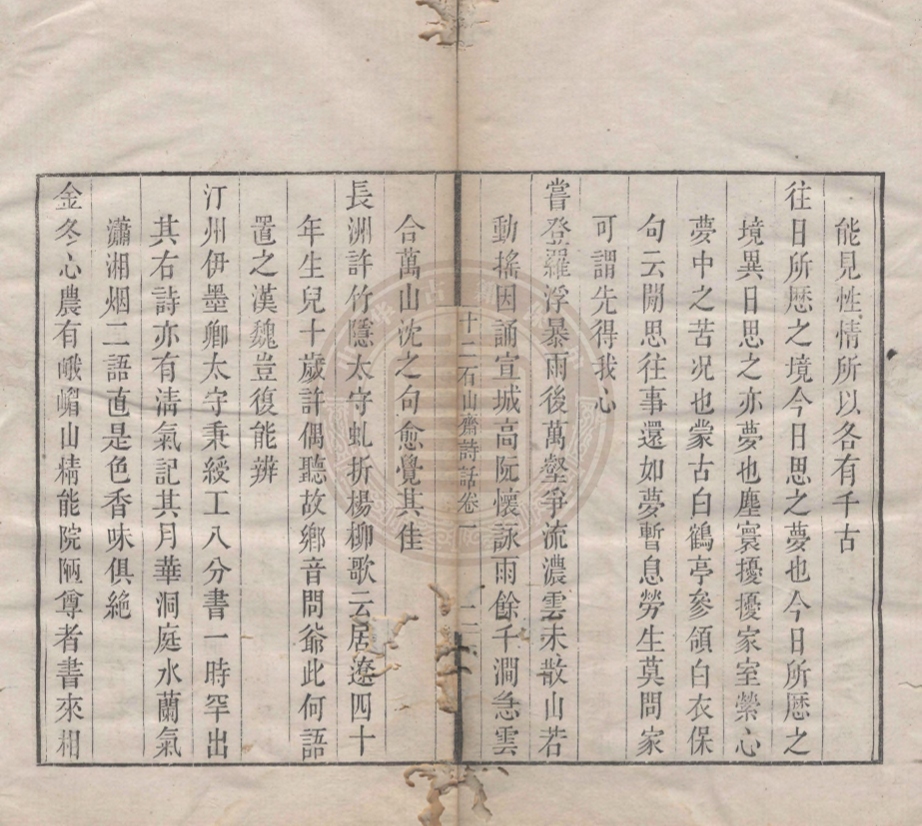 能見性情所以各有千古
往日所歴之境今日思之夢也今日所歴之
境異日思之亦夢也塵寰擾擾家室縈心
夢中之苦况也蒙古白鶴亭參領白衣保
句云閒思往事還如夢暫息勞生莫問家
可謂先得我心
嘗登羅浮暴雨後萬壑爭流濃雲未散山若
動搖因誦宣城高阮懷詠雨餘千澗急雲
十二石山齋詩話卷一 二
合萬山沈之句愈覺其佳
長洲許竹隱太守虬折楊柳歌云居遼四十
年生兒十歲許偶聽故鄉音問爺此何語
置之漢魏豈復能辨
汀州伊墨卿太守秉綬工八分書一時罕出
其右詩亦有淸氣記其月華洞庭水蘭氣
瀟湘烟二語直是色香味俱絶
金冬心農有峨嵋山精能院陋尊者書來相